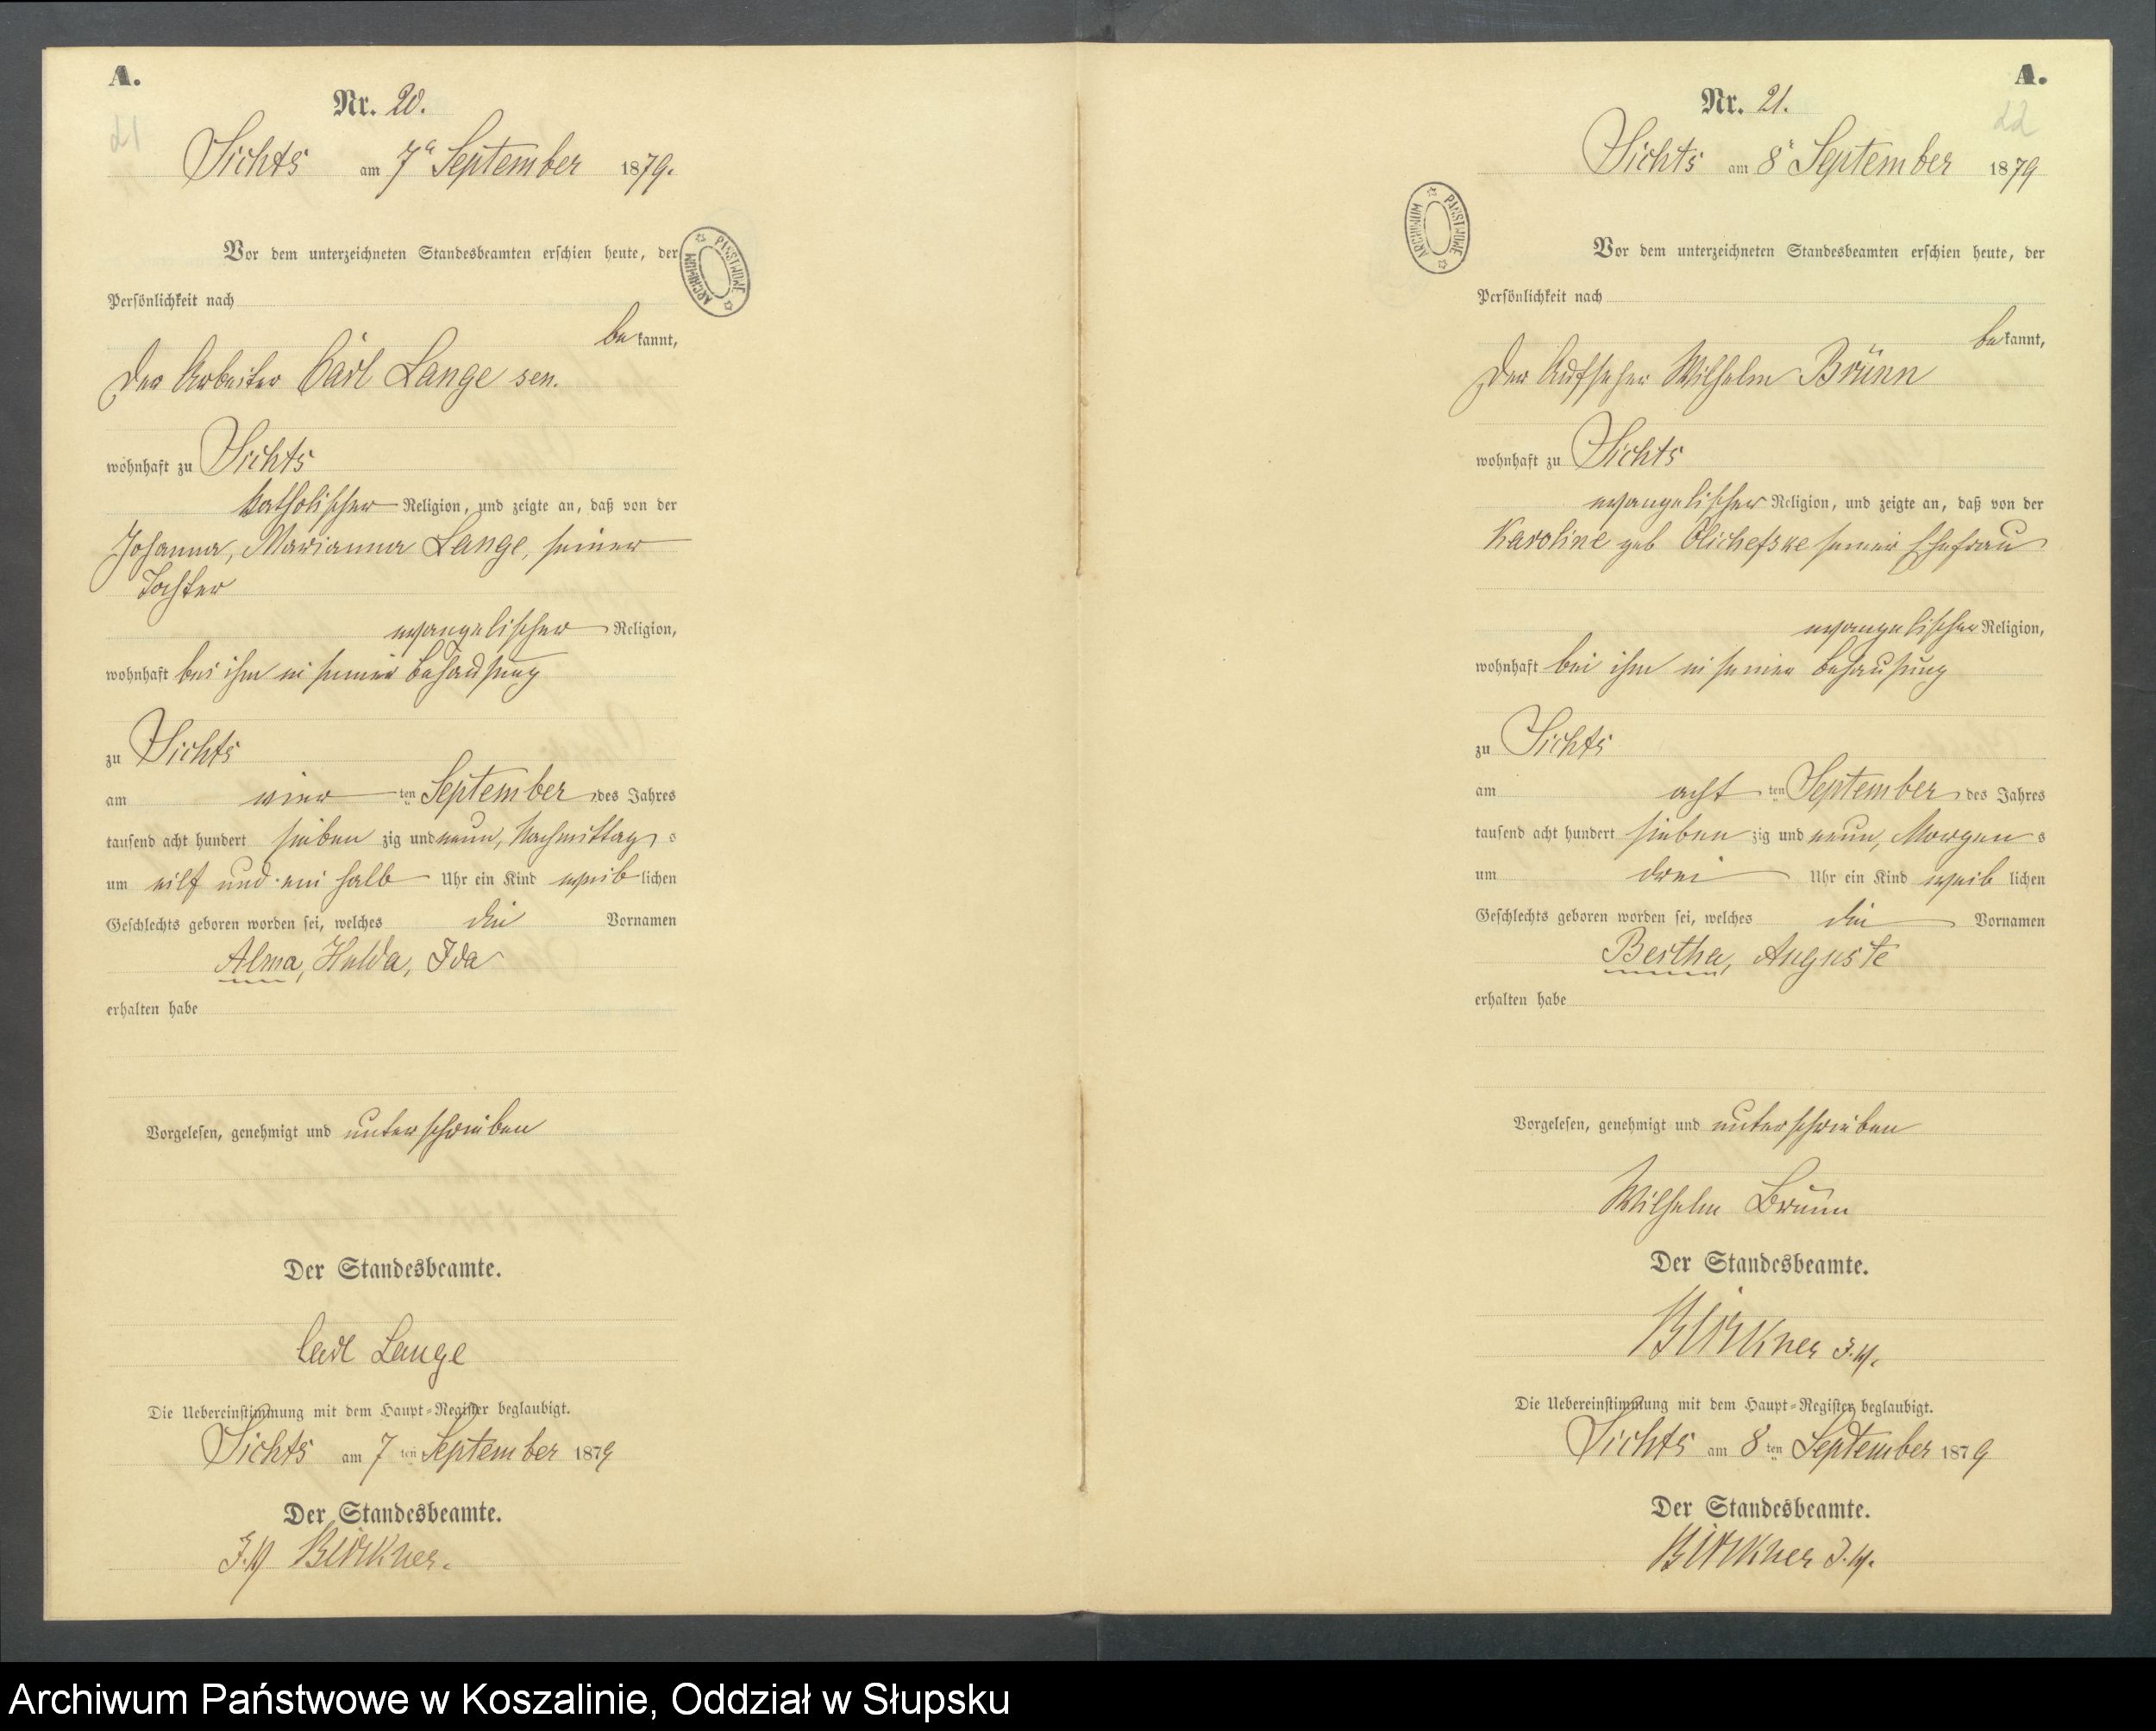 A.
21
Nr. 20.
Sichts am 7ᵗ September 1879.
Vor dem unterzeichneten Standesbeamten erschien heute, der
Persönlichkeit nach
bekannt,
Der Arbeiter Carl Lange sen.
wohnhaft zu Sichts
katholischer Religion, und zeigte an, daß von der
Johanna, Marianna Lange, seiner
Tochter
evangelischer Religion,
wohnhaft bei ihm in seiner Behausung
zu Sichts
am vier ten September des Jahres
tausend acht hundert sieben zig und neun, Nachmittags
um eilf und ein halb Uhr ein Kind weiblichen
Geschlechts geboren worden sei, welches die Vornamen
Alma, Hulda, Ida
erhalten habe
Vorgelesen, genehmigt und unterschrieben
Der Standesbeamte.
Carl Lange
Die Uebereinstimmung mit dem Haupt-Register beglaubigt.
Sichts am 7 ten September 1879
Der Standesbeamte.
Birkner.
ARCHIWUM PAŃSTWOWE
A.
22
Nr. 21.
Sichts am 8ᵗ September 1879
Vor dem unterzeichneten Standesbeamten erschien heute, der
Persönlichkeit nach
bekannt,
Der Aufseher Wilhelm Brünn
wohnhaft zu Sichts
evangelischer Religion, und zeigte an, daß von der
Karoline geb Olichefske seiner Ehefrau
evangelischer Religion,
wohnhaft bei ihm in seiner Behausung
zu Sichts
am acht ten September des Jahres
tausend acht hundert sieben zig und neun, Morgens
um drei Uhr ein Kind weib lichen
Geschlechts geboren worden sei, welches die Vornamen
Bertha, Auguste
erhalten habe
Vorgelesen, genehmigt und unterschrieben
Wilhelm Brünn
Der Standesbeamte.
Birkner
Die Uebereinstimmung mit dem Haupt-Register beglaubigt.
Sichts am 8 ten September 1879
Der Standesbeamte.
Birkner
ARCHIWUM PAŃSTWOWE
Archiwum Państwowe w Koszalinie, Oddział w Słupsku